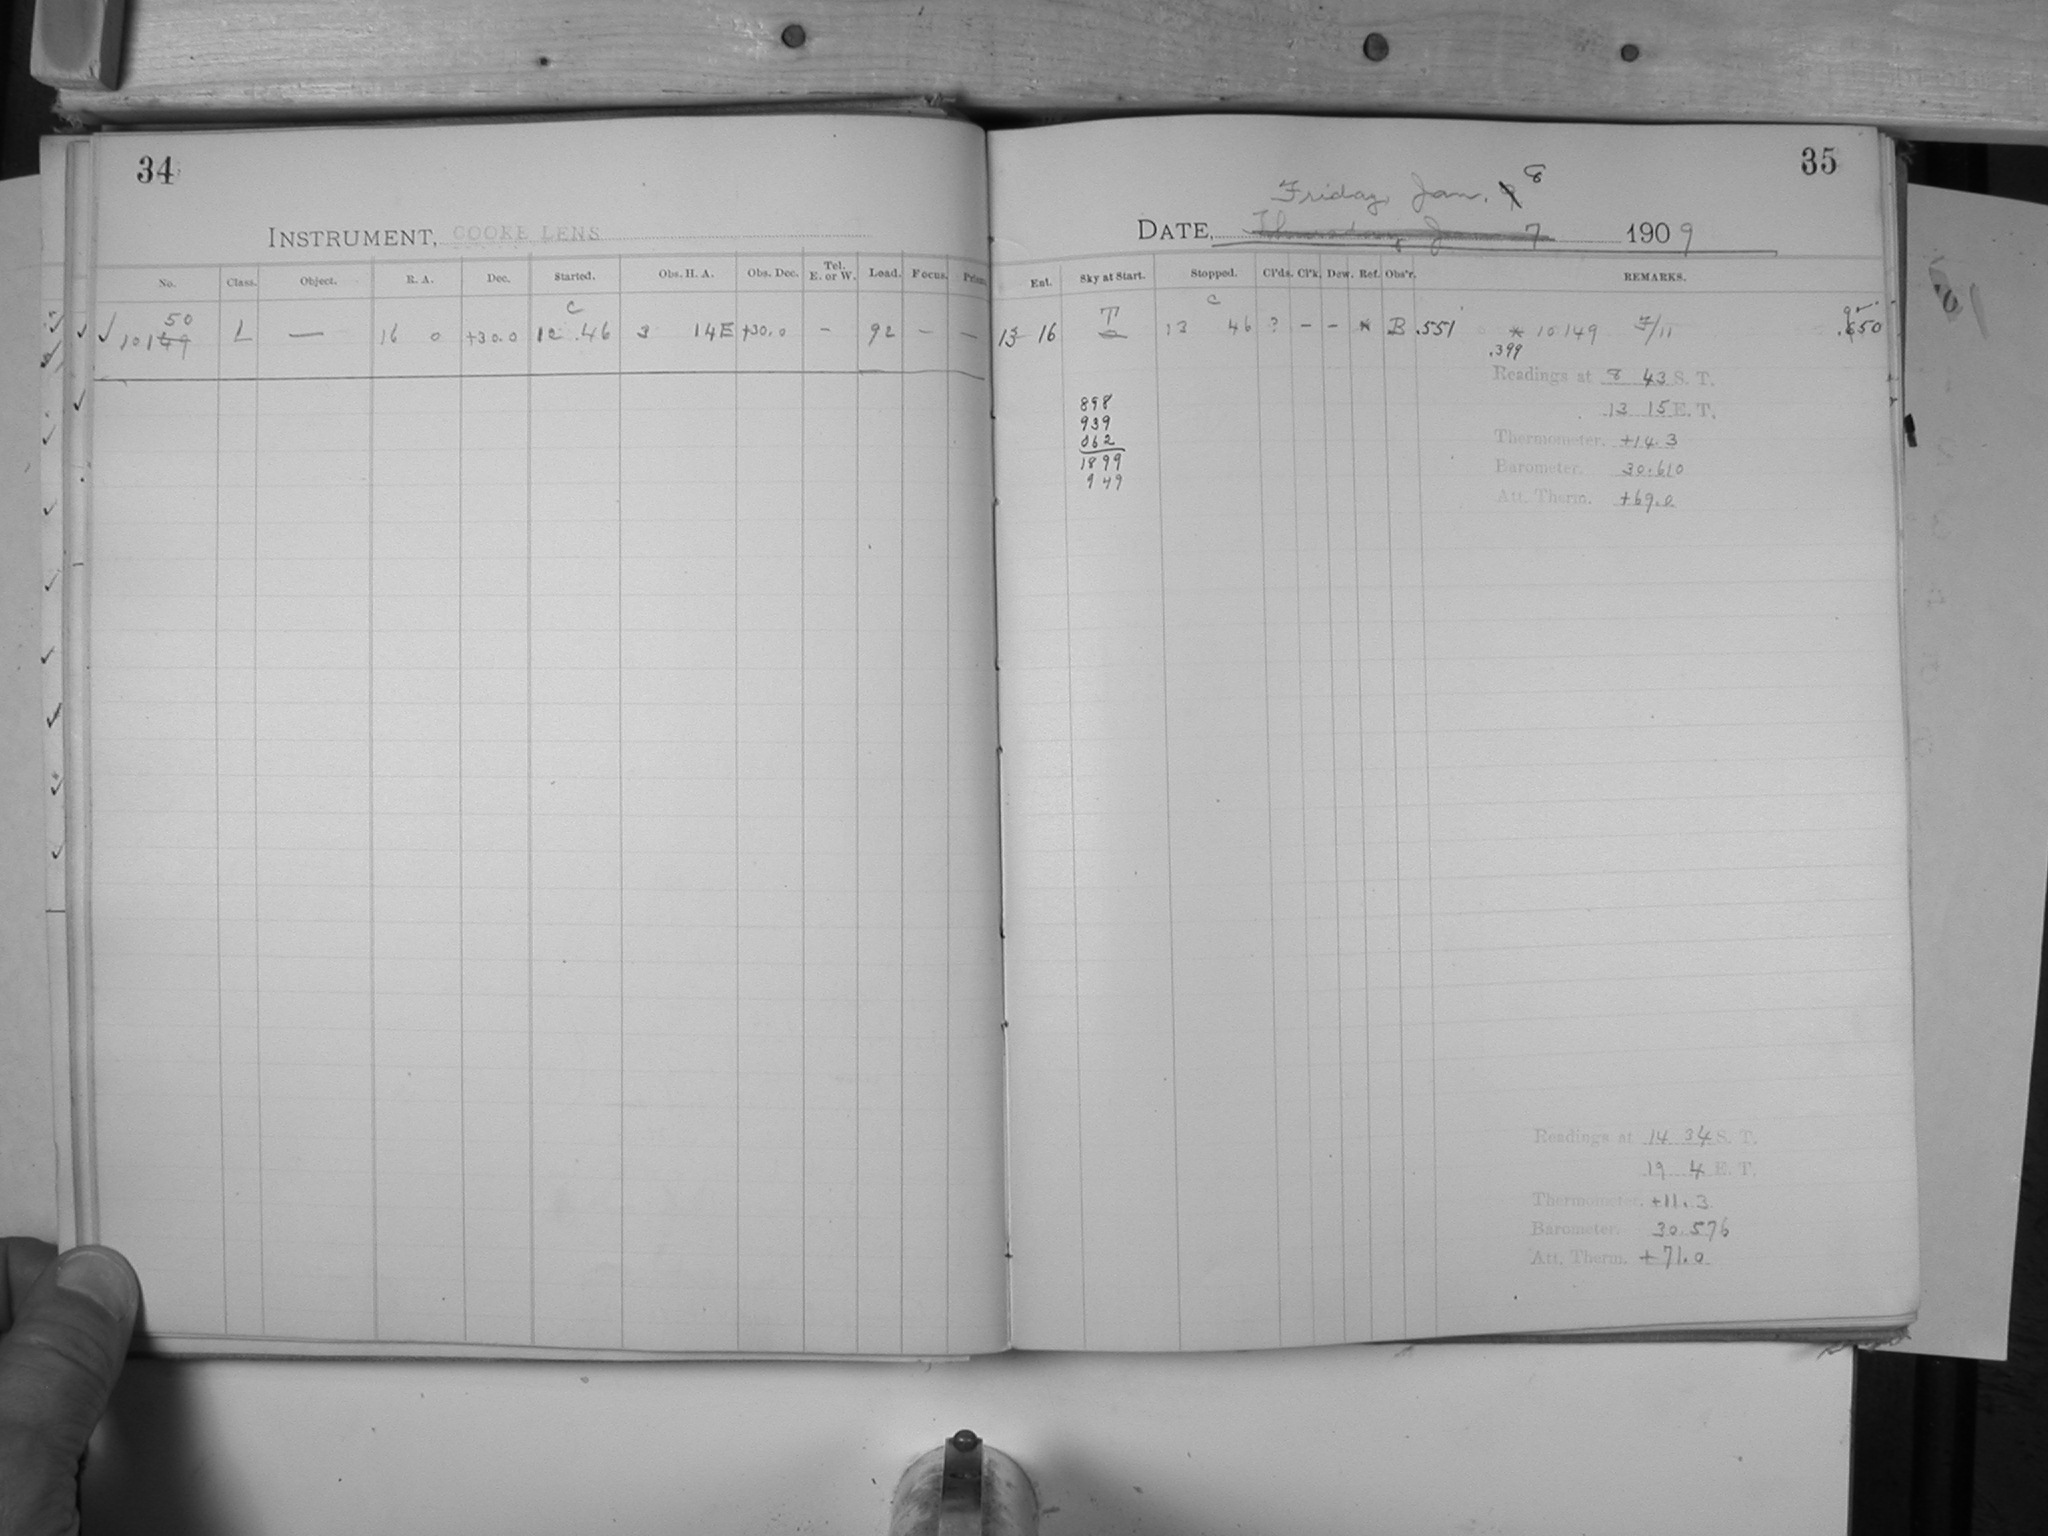 34
INSTRUMENT, COOKE LENS
No. Class. Object. R. A. Dec. Started. Obs. H. A. Obs. Dec. Tel. E. or W. Load. Focus. Prism.
50 C
✓ 10149 L — 16 0 +30.0 12 46 3 14E +30.0 – 92 – –
35
Friday, Jan. 9 8
DATE, Thursday, Jan 7 1909
Ent. Sky at Start. Stopped. Cl'ds. Cl'k. Dew. Ref. Obs'r. REMARKS.
T C 9
13 16 13 46 ? – – * B .551 * 10149 7/11 .650
.399
Readings at 8 43 S. T.
13 15 E. T.
Thermometer. +14.3
Barometer. 30.610
Att. Therm. +69.0
898
939
062
1899
949
Readings at 14 34 S. T.
19 4 E. T.
Thermometer. +11.3
Barometer. 30.576
Att. Therm. +71.0